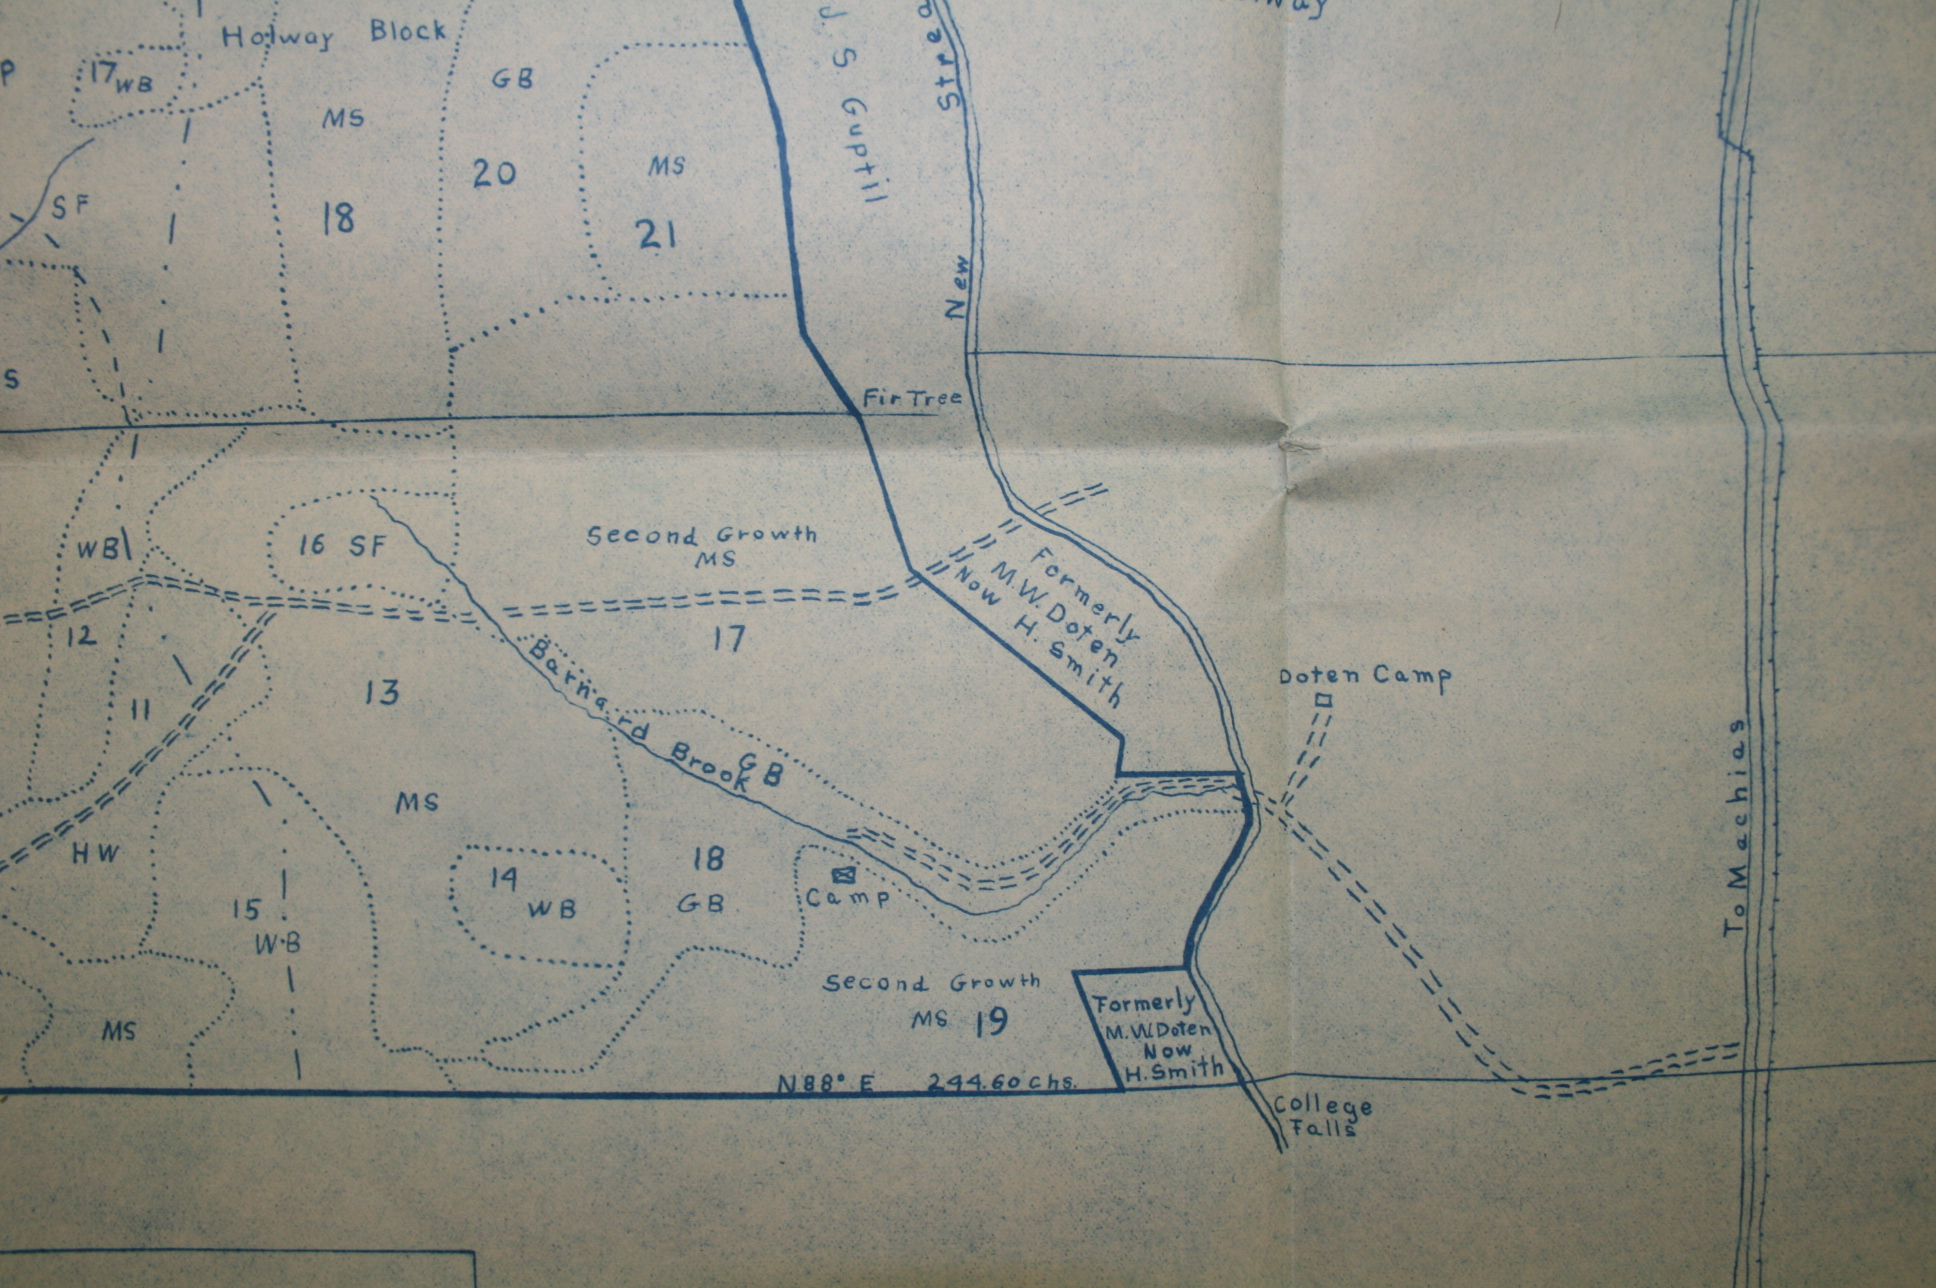 To Machias
Doten Camp
College
Falls
Formerly
M.W. Doten
Now
H. Smith
Formerly
M.W. Doten
Now H. Smith
New
J. S. Guptil
Fir Tree
Second Growth
MS 19
N 88° E 244.60 chs.
Camp
Second Growth
MS
17
Barnard Brook
GB
18
GB
MS
21
GB
20
14
WB
Holway Block
MS
18
16 SF
13
MS
15
W.B
17
WB
SF
WB
12
11
HW
MS
S